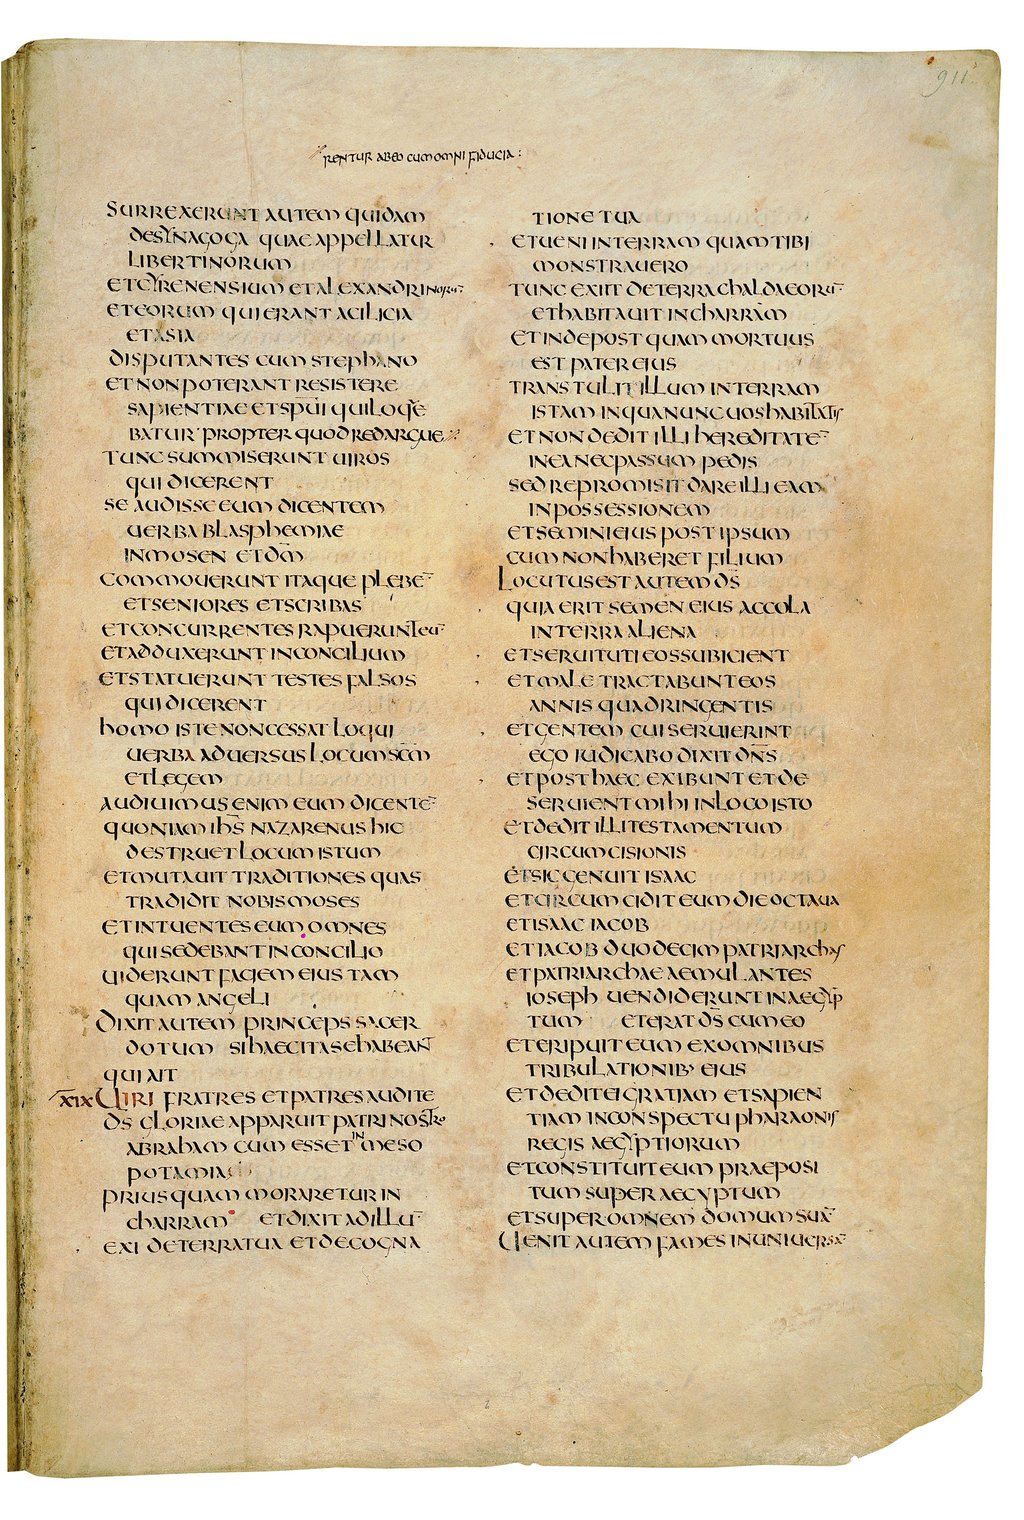 911
rentur ab eo cum omni fiducia :
Surrexerunt autem quidam
de synagoga quae appellatur
libertinorum
et cyrenensium et alexandrinoru̅
et eorum qui erant a cilicia
et asia
disputantes cum stephano
et non poterant resistere
sapientiae et sp̅u̅i qui loque
batur propter quod redargue
Tunc summiserunt uiros
qui dicerent
se audisse eum dicentem
uerba blasphemiae
in mosen et d̅m̅
commouerunt itaque plebe̅
et seniores et scribas
et concurrentes rapuerunt eu̅
et adduxerunt in concilium
et statuerunt testes falsos
qui dicerent
homo iste non cessat loqui
uerba aduersus locum s̅c̅m̅
et legem
audiuimus enim eum dicente̅
quoniam ih̅s̅ nazarenus hic
destruet locum istum
et mutauit traditiones quas
tradidit nobis moses
et intuentes eum omnes
qui sedebant in concilio
uiderunt faciem eius tam
quam angeli
Dixit autem princeps sacer
dotum si haec ita se habeant
qui ait
xix Uiri fratres et patres audite
d̅s̅ gloriae apparuit patri nostro
abraham cum esset in meso
potamia
priusquam moraretur in
charram et dixit ad illu̅
exi de terra tua et de cogna
tione tua
et ueni in terram quam tibi
monstrauero
Tunc exiit de terra chaldaeoru̅
et habitauit in charram
et inde postquam mortuus
est pater eius
transtulit illum in terram
istam in qua nunc uos habitatis
et non dedit illi hereditate̅
in ea nec passum pedis
sed repromisit dare illi eam
in possessionem
et semini eius post ipsum
cum non haberet filium
Locutus est autem d̅s̅
quia erit semen eius accola
in terra aliena
et seruituti eos subicient
et male tractabunt eos
annis quadringentis
et gentem cui seruierint
ego iudicabo dixit d̅n̅s̅
et post haec exibunt et de
seruient mihi in loco isto
et dedit illi testamentum
circumcisionis
et sic genuit isaac
et circumcidit eum die octaua
et isaac iacob
et iacob duodecim patriarchas
et patriarchae aemulantes
ioseph uendiderunt in aegyp
tum et erat d̅s̅ cum eo
et eripuit eum ex omnibus
tribulationib' eius
et dedit ei gratiam et sapien
tiam in conspectu pharaonis
regis aegyptiorum
et constituit eum praeposi
tum super aegyptum
et super omnem domum sua̅
Uenit autem fames in uniuersa̅